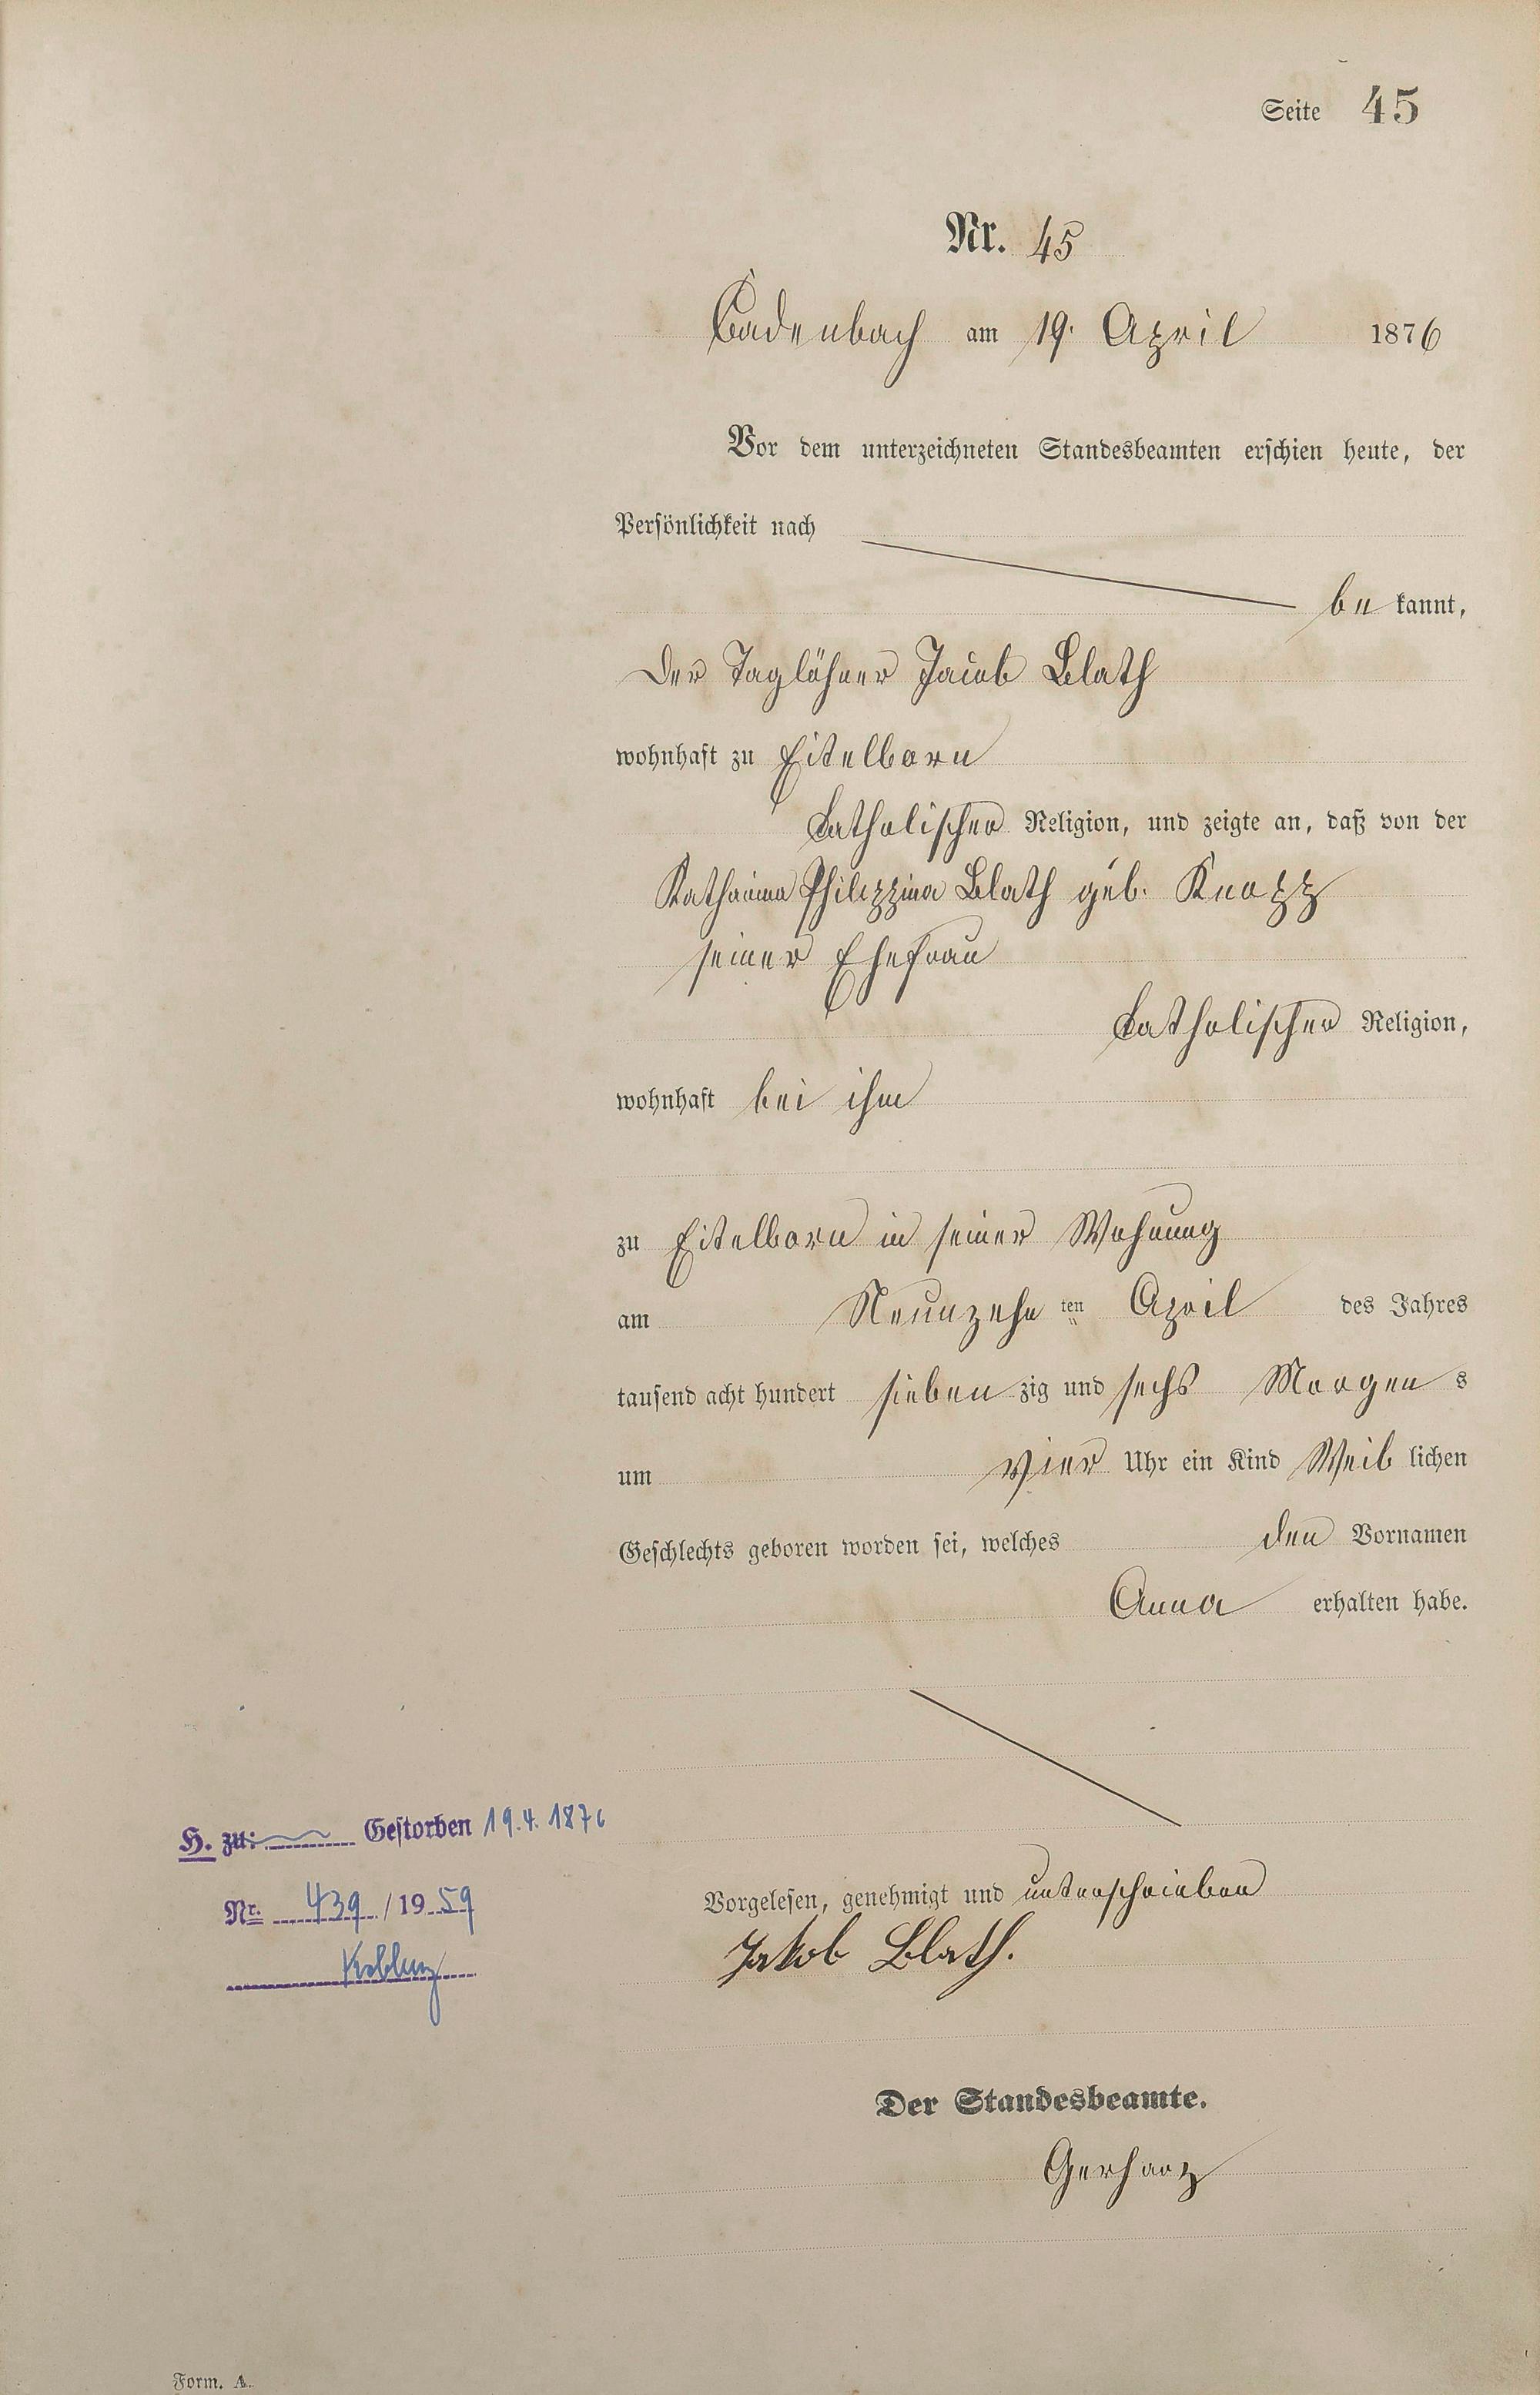 Seite 45
Nr. 45
Cadenbach am 19. April 1876
Vor dem unterzeichneten Standesbeamten erschien heute, der
Persönlichkeit nach
be kannt,
Der Taglöhner Jacob Blath
wohnhaft zu Eitelborn
katholischer Religion, und zeigte an, daß von der
Katharina Philippina Blath geb. Knopp
seiner Ehefrau
katholischer Religion,
wohnhaft bei ihm
zu Eitelborn in seiner Wohnung
am Neunzehn ten April des Jahres
tausend acht hundert sieben zig und sechs Morgen s
um vier Uhr ein Kind Weib lichen
Geschlechts geboren worden sei, welches den Vornamen
Anna erhalten habe.
H. zu: Gestorben 19.4.1876
Nr. 439 / 19 59
Koblenz
Vorgelesen, genehmigt und unterschrieben
Jakob Blath.
Der Standesbeamte.
Gerharz
Form. A.